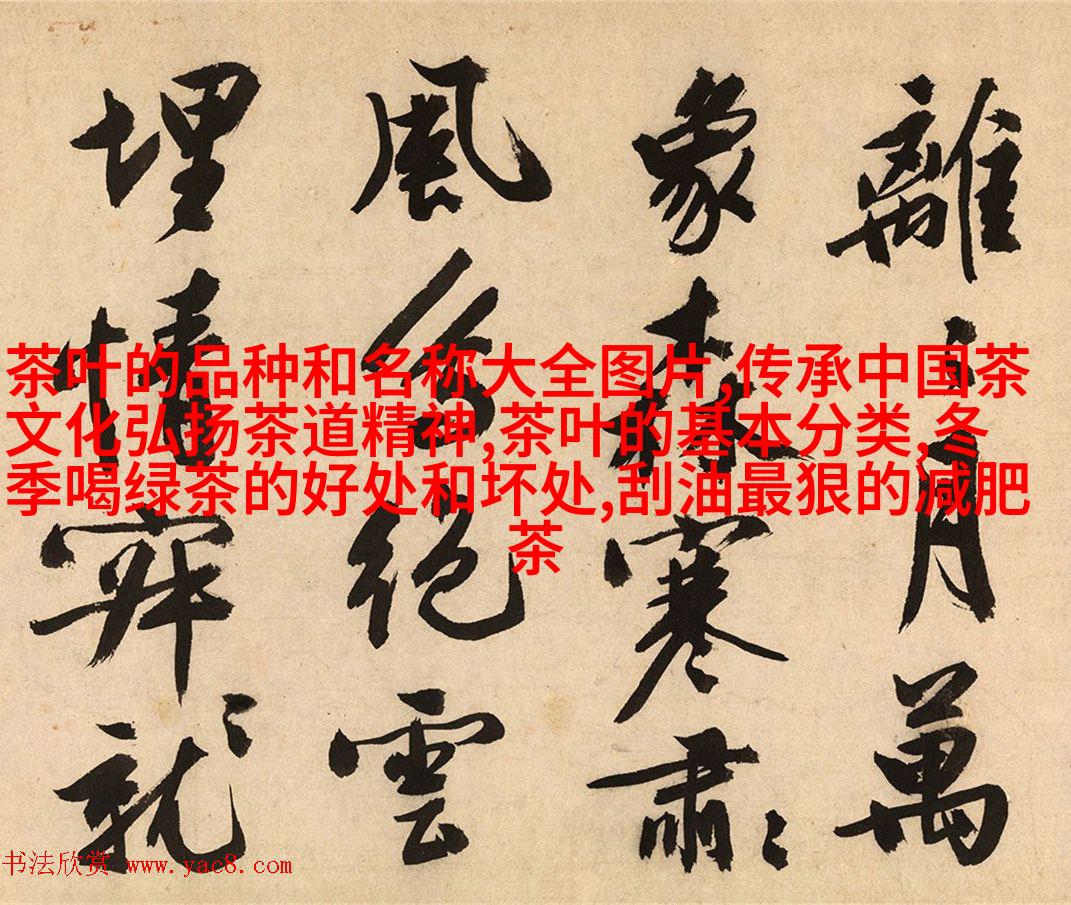 離〻月萬
象森寒肅〻
風絕雲
埋情就〻
茶叶的品种和名称大全图片,传承中国茶
文化弘扬茶道精神,茶叶的基本分类,冬
季喝绿茶的好处和坏处,刮油最狠的减肥
茶
书法欣赏 www.yac8.com